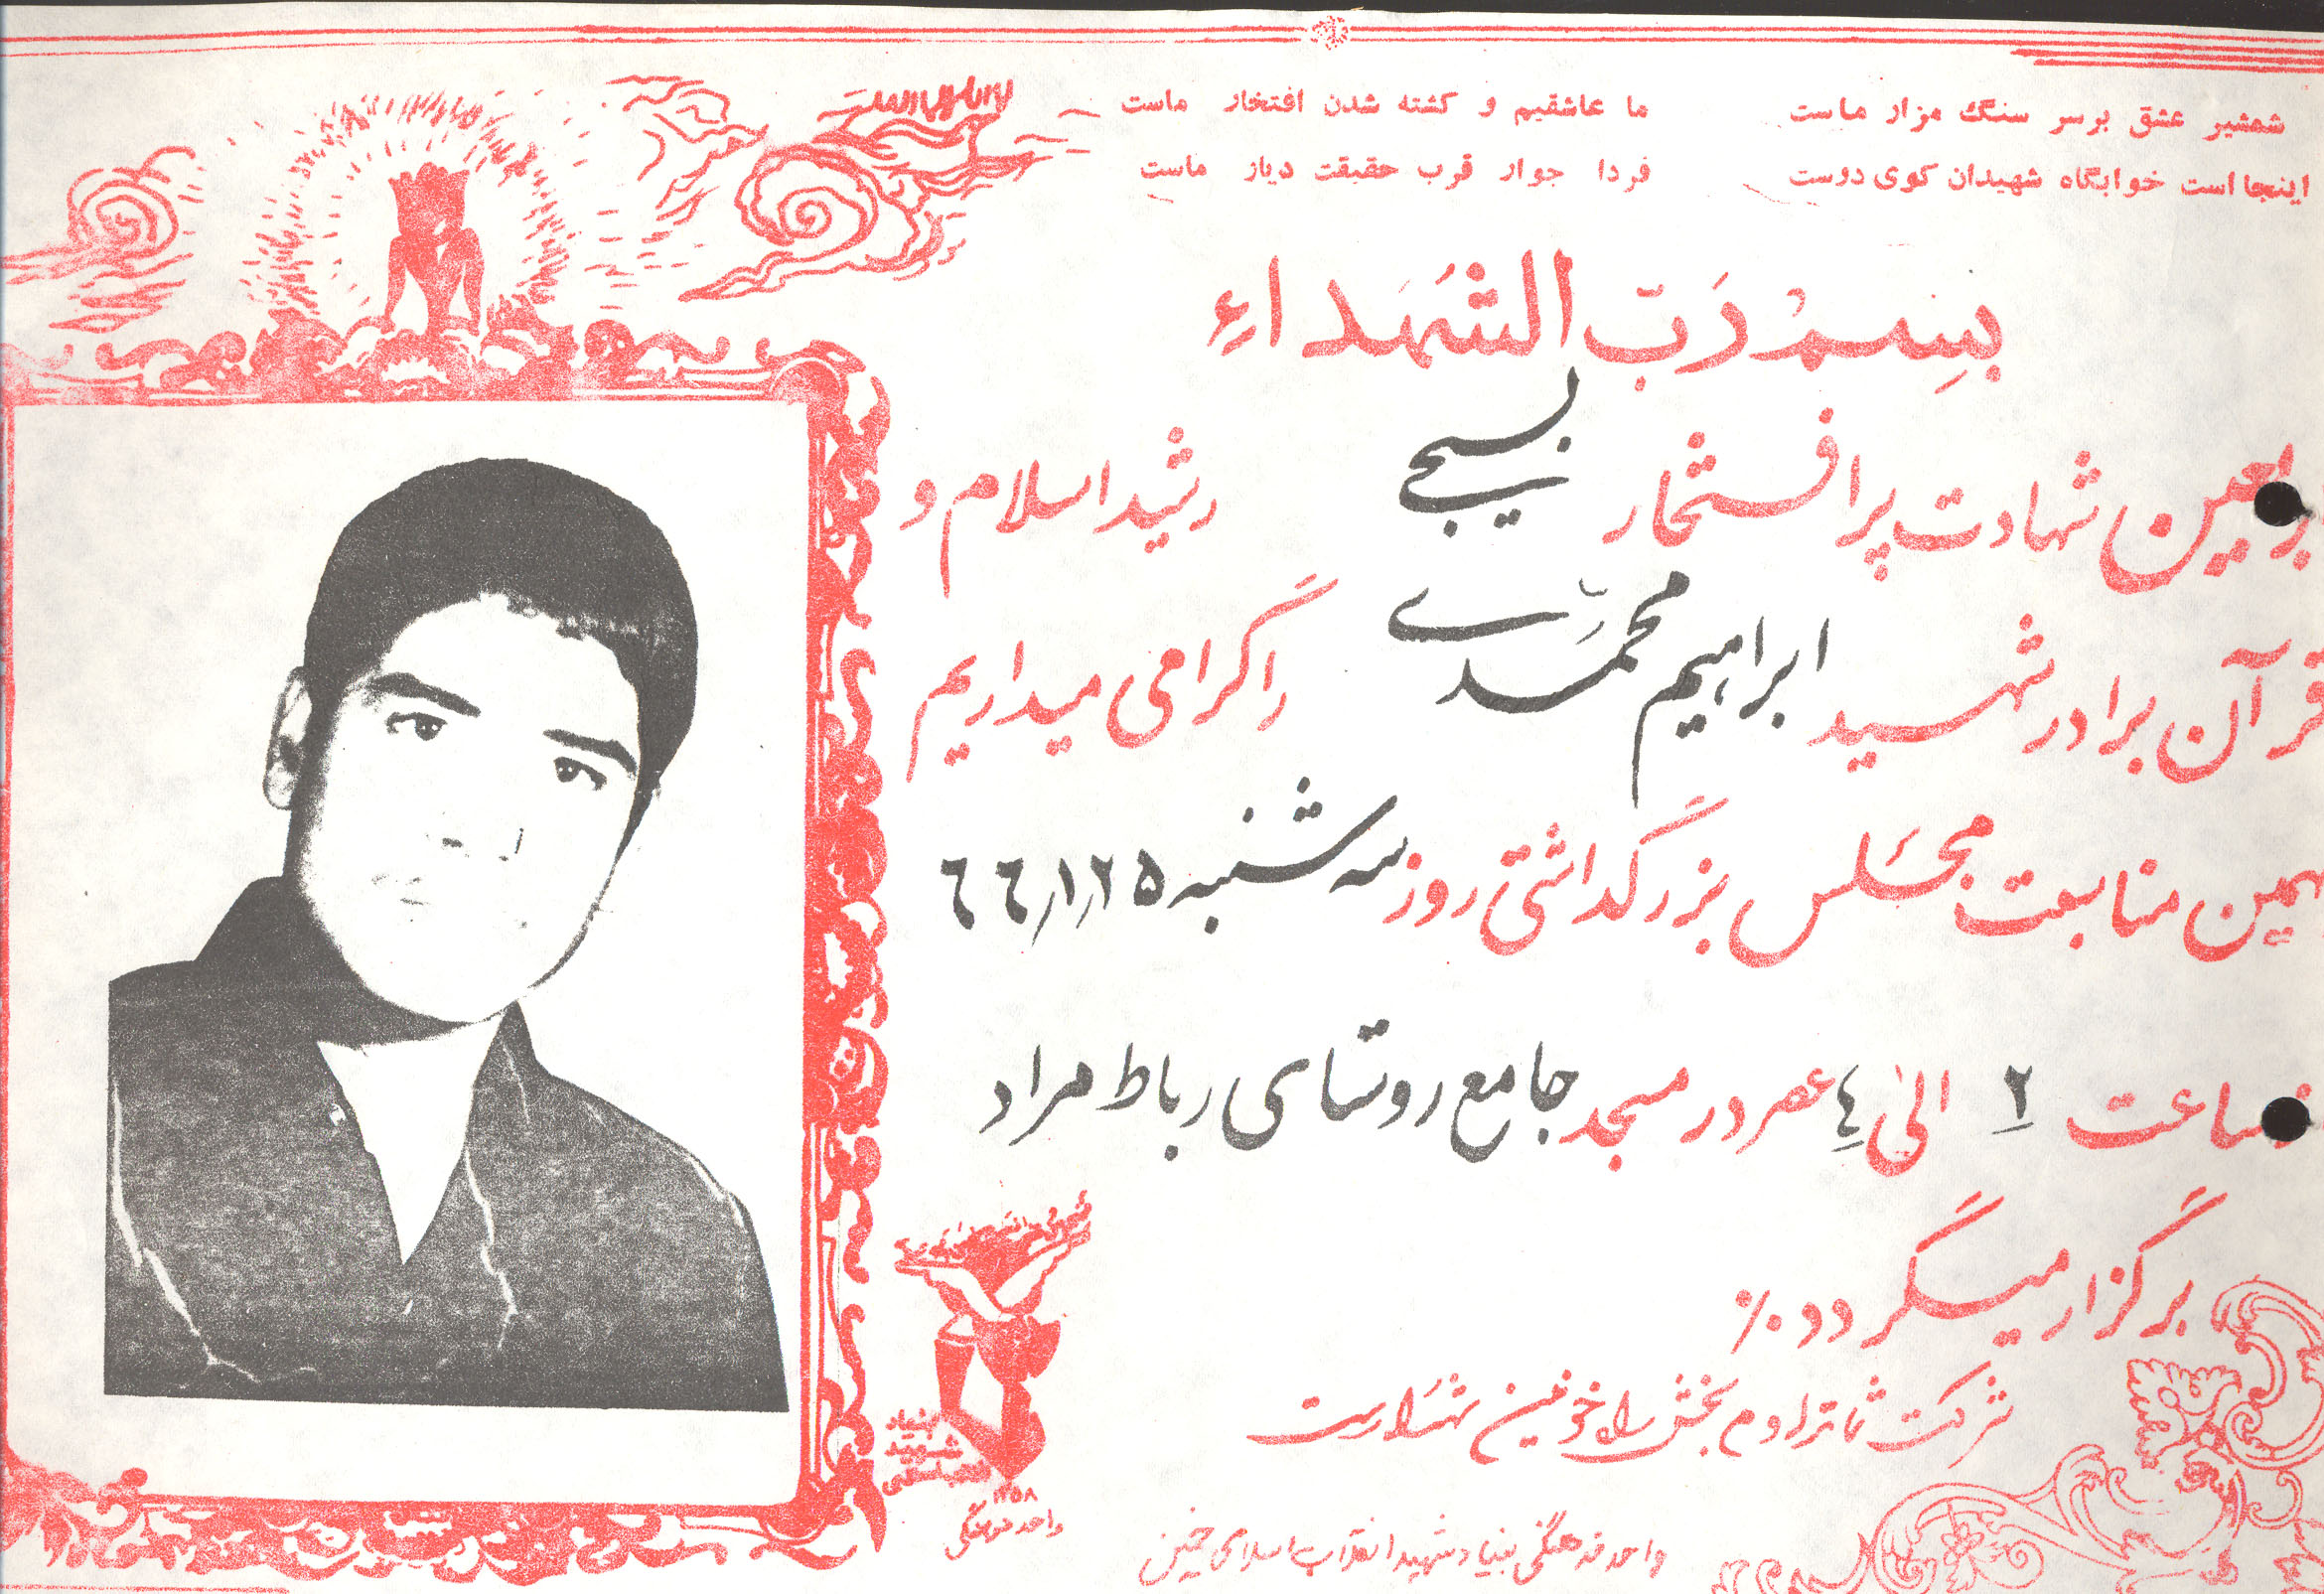 شمشیر عشق بر سر سنگ مزار ماست ما عاشقیم و کشته شدن افتخار ماست
اینجا است خوابگاه شهیدان کوی دوست فردا جوار قرب حقیقت دیار ماست
بِسمِ رَبّ الشهَداءِ
اربعین شهادت پر افتخار بسیجی رشید اسلام و
قرآن برادر شهید ابراهیم محمّدی را گرامی میداریم
بهمین مناسبت مجلس بزرگداشتی روز سه شنبه ۶۶/۱/۲۵
ساعت ۲ الی ٤ عصر در مسجد جامع روستای رباط مراد
برگزار میگردد٪
شرکت شما تداوم بخش راه خونین شهداست
بنیاد
شهید
انقلاب اسلامی
۱۳۵۸
واحد فرهنگی
واحد فرهنگی بنیاد شهید انقلاب اسلامی خمین